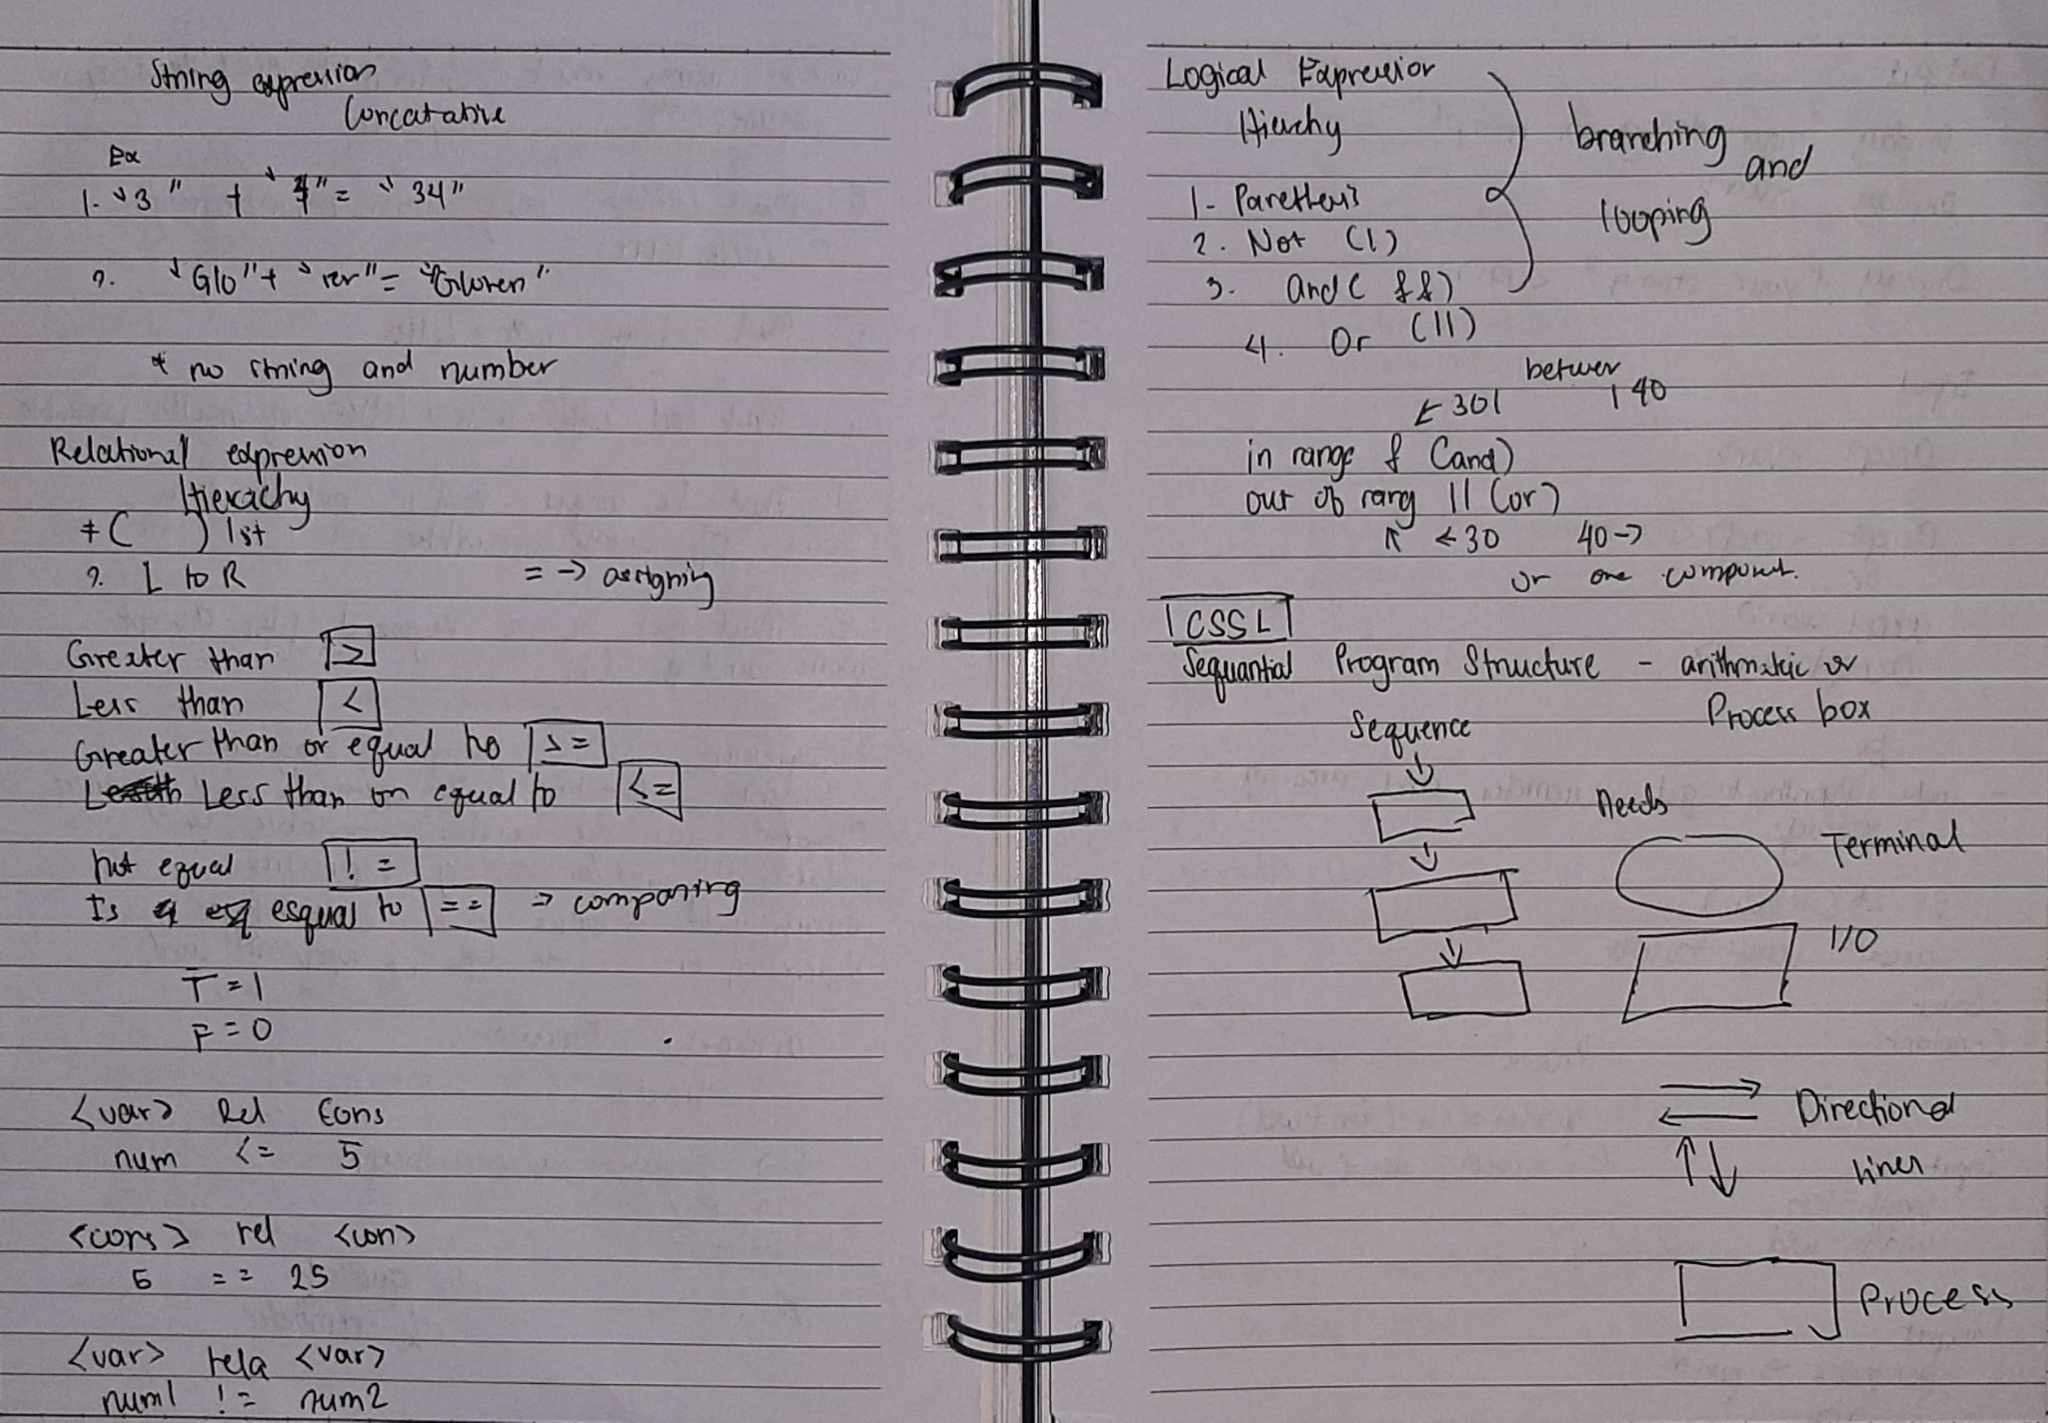 String expression
Concatative
Ex
1. "3" + "4" = "34"
2. "Glo" + "rer" = "Gloren"
* no string and number
Relational expression
Hierachy
* ( ) 1st
2. L to R = -> assigning
Greater than >
Less than <
Greater than or equal to >=
Less than or equal to <=
not equal !=
Is esqual to == => comparing
T = 1
F = 0
<var> Rel Cons
num <= 5
<cons> rel <con>
5 == 25
<var> rela <var>
num1 != num2
Logical Expression
Hierchy
branching
and
looping
1- Parethesis
2. Not (!)
3. and ( &&)
4. Or (||)
between
← 30| | 40
in range & (and)
out of rang || (or)
↑ ← 30 40 ->
or one component.
CSSL
Sequantial Program Structure - arithmatic or
Process box
Sequence
Needs
Terminal
I/O
Directional
Lines
Process